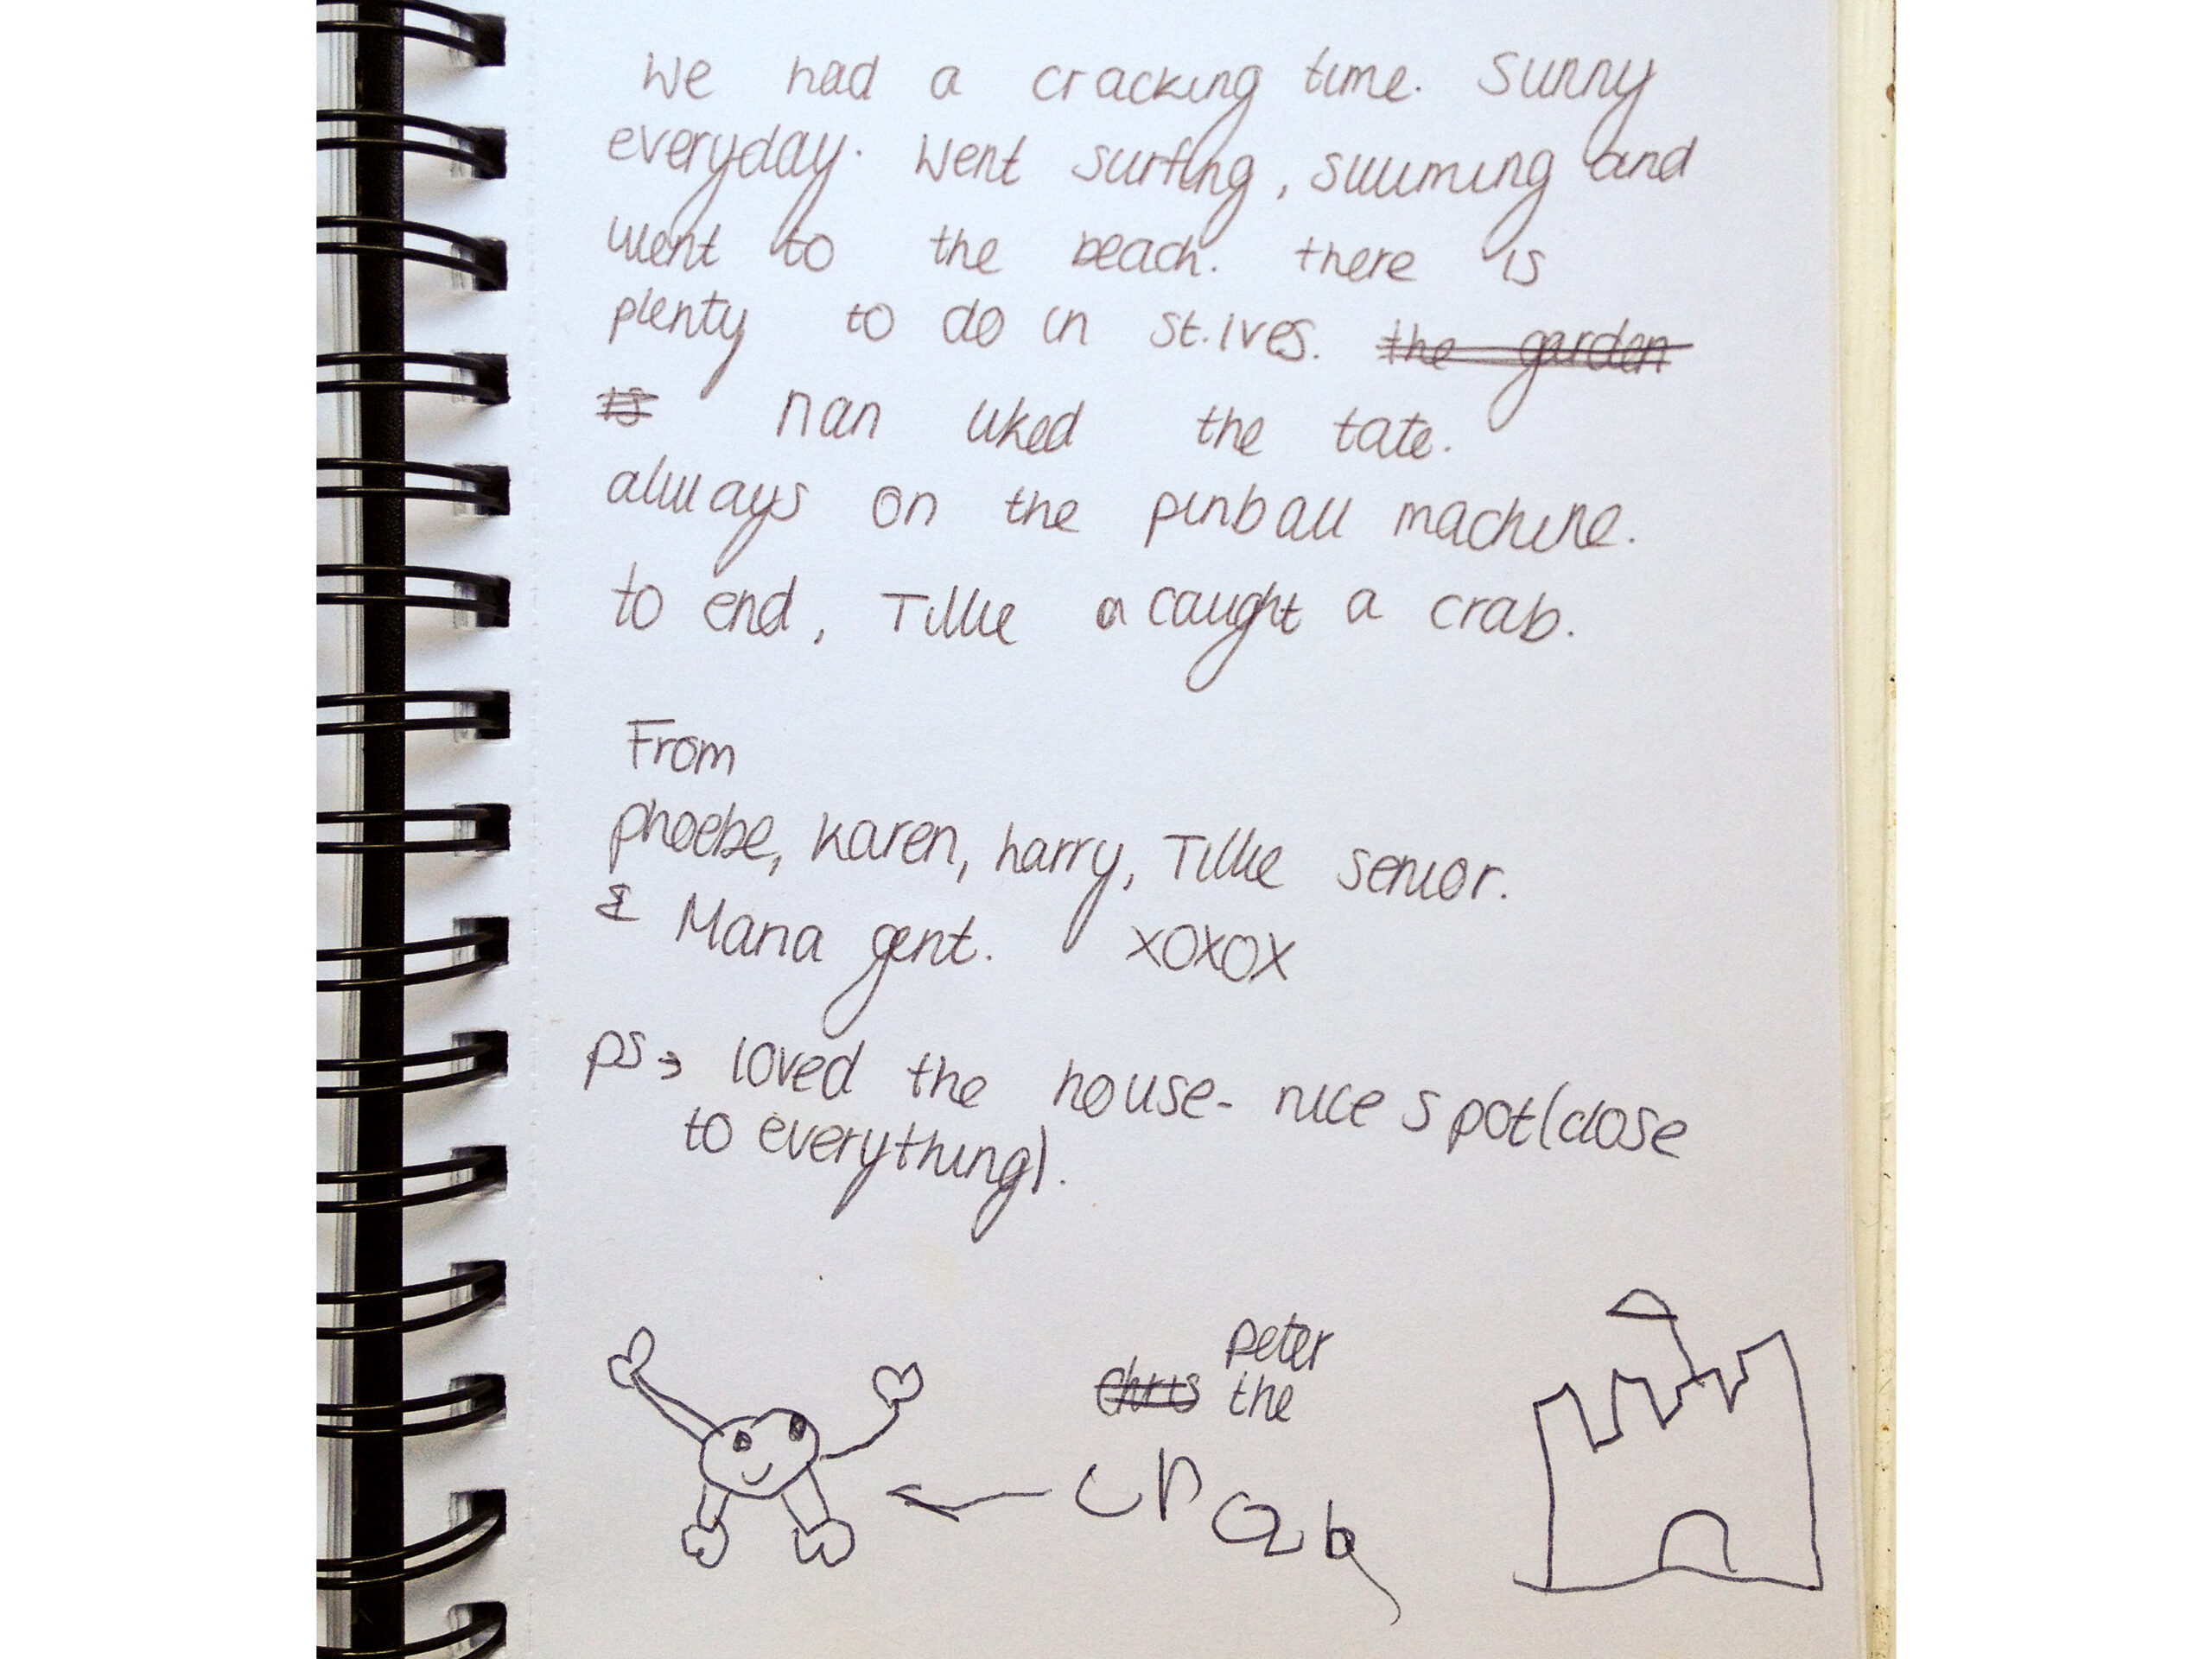 We had a cracking time. Sunny
everyday. Went surfing, swiming and
went to the beach. there is
plenty to do in st.ives. ~~the garden~~
~~is~~ nan liked the tate.
always on the pinball machine.
to end, Tillie a caught a crab.
From
phoebe, karen, harry, Tillie senior.
& Maria gent. xoxox
ps→ loved the house- nice spot(close
to everything).
peter
~~chris~~ the
crab